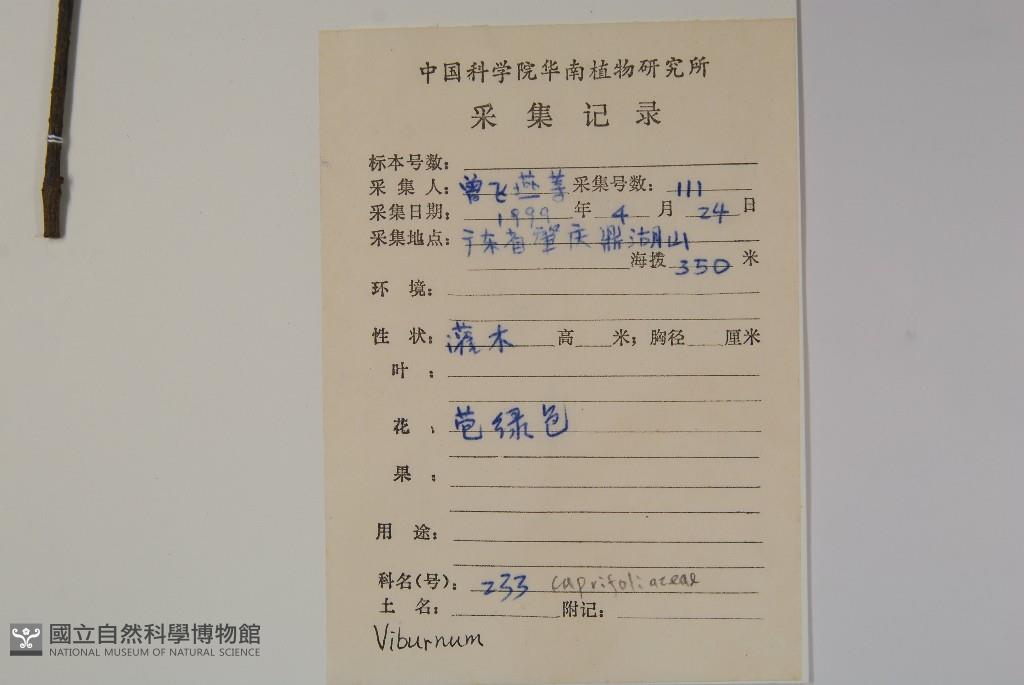 中国科学院华南植物研究所
采集记录
标本号数:
采集人: 曾飞燕等 采集号数: 111
采集日期: 1999 年 4 月 24 日
采集地点: 广东省肇庆鼎湖山
海拨 350 米
环境:
性状: 灌木 高 米; 胸径 厘米
叶:
花: 苞绿色
果:
用途:
科名(号): 233 Caprifoliaceae
土名: 附记:
Viburnum
國立自然科學博物館
NATIONAL MUSEUM OF NATURAL SCIENCE